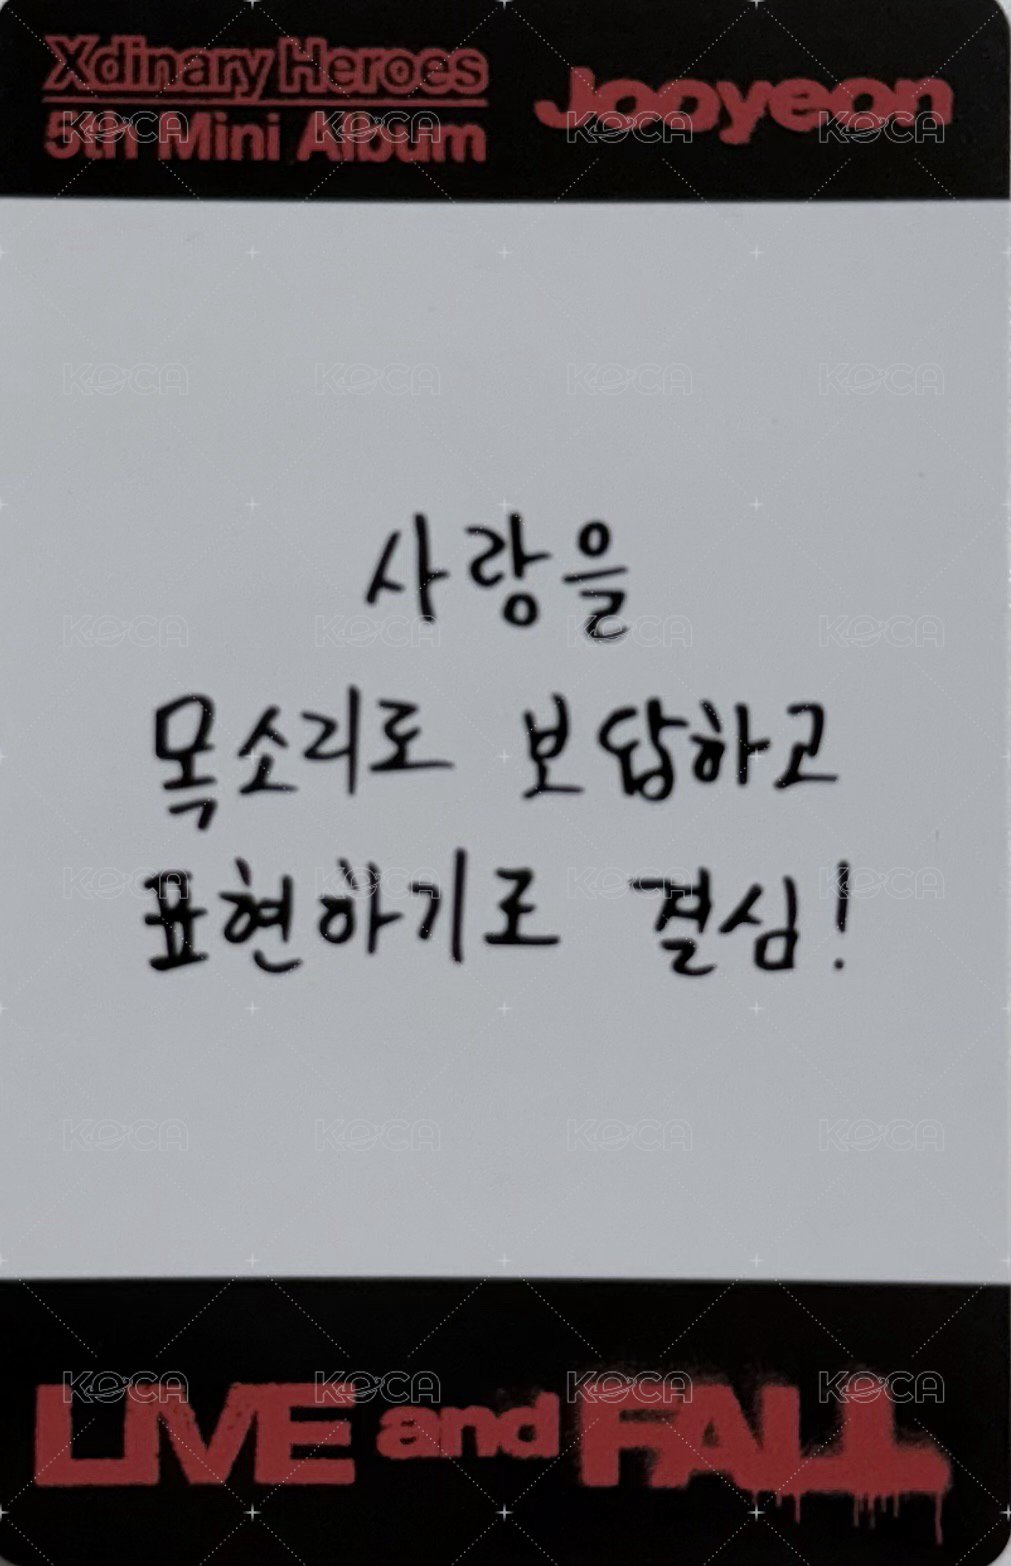 Xdinary Heroes
5th Mini Album
Jooyeon
사랑을
목소리로 보답하고
표현하기로 결심!
LIVE and FALL
KOCA